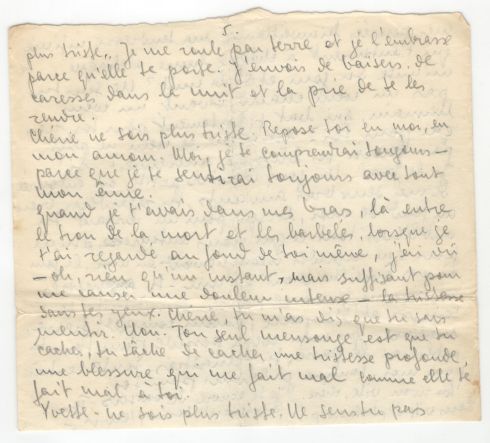 5.
plus triste. Je me roule par terre et je l'embrasse
parce qu'elle te porte. J'envois de baisers, de
caresses dans la nuit et la prie de te les
rendre.
Chérie ne sois plus triste. Repose toi en moi, en
mon amour. Moi, je te comprendrai toujours —
parce que je te sentirai toujours avec tout
mon âme.
Quand je t'avais dans mes bras, là entre
le trou de la mort et les barbelés, lorsque je
t'ai regardé au fond de toi même, j'ai vu
— oh, rien qu'un instant, mais suffisant pour
me causer une douleur intense — la tristesse
dans tes yeux. Chérie, tu m'as dis que tu sais
mentir. Non. Ton seul mensonge est que tu
caches, tu tâche de cacher une tristesse profonde,
une blessure qui me fait mal comme elle te
fait mal à toi.
Yvette — ne sois plus triste. Ne sens tu pas